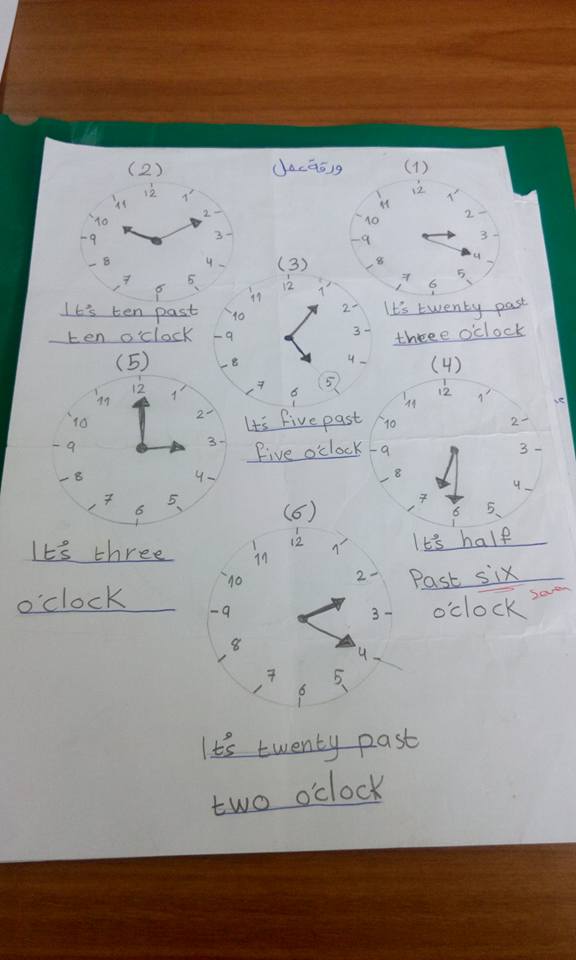 ورقة عمل
(2)
12
1
2
3
4
5
6
7
8
9
10
11
It's ten past
ten o'clock
(1)
12
1
2
3
4
5
6
7
8
9
10
11
It's twenty past
three o'clock
(3)
12
1
2
3
4
5
6
7
8
9
10
11
It's five past
five o'clock
(5)
12
1
2
3
4
5
6
7
8
9
10
11
It's three
o'clock
(4)
12
1
2
3
4
5
6
7
8
9
10
11
It's half
Past six
seven
o'clock
(6)
12
1
2
3
4
5
6
7
8
9
10
11
It's twenty past
two o'clock